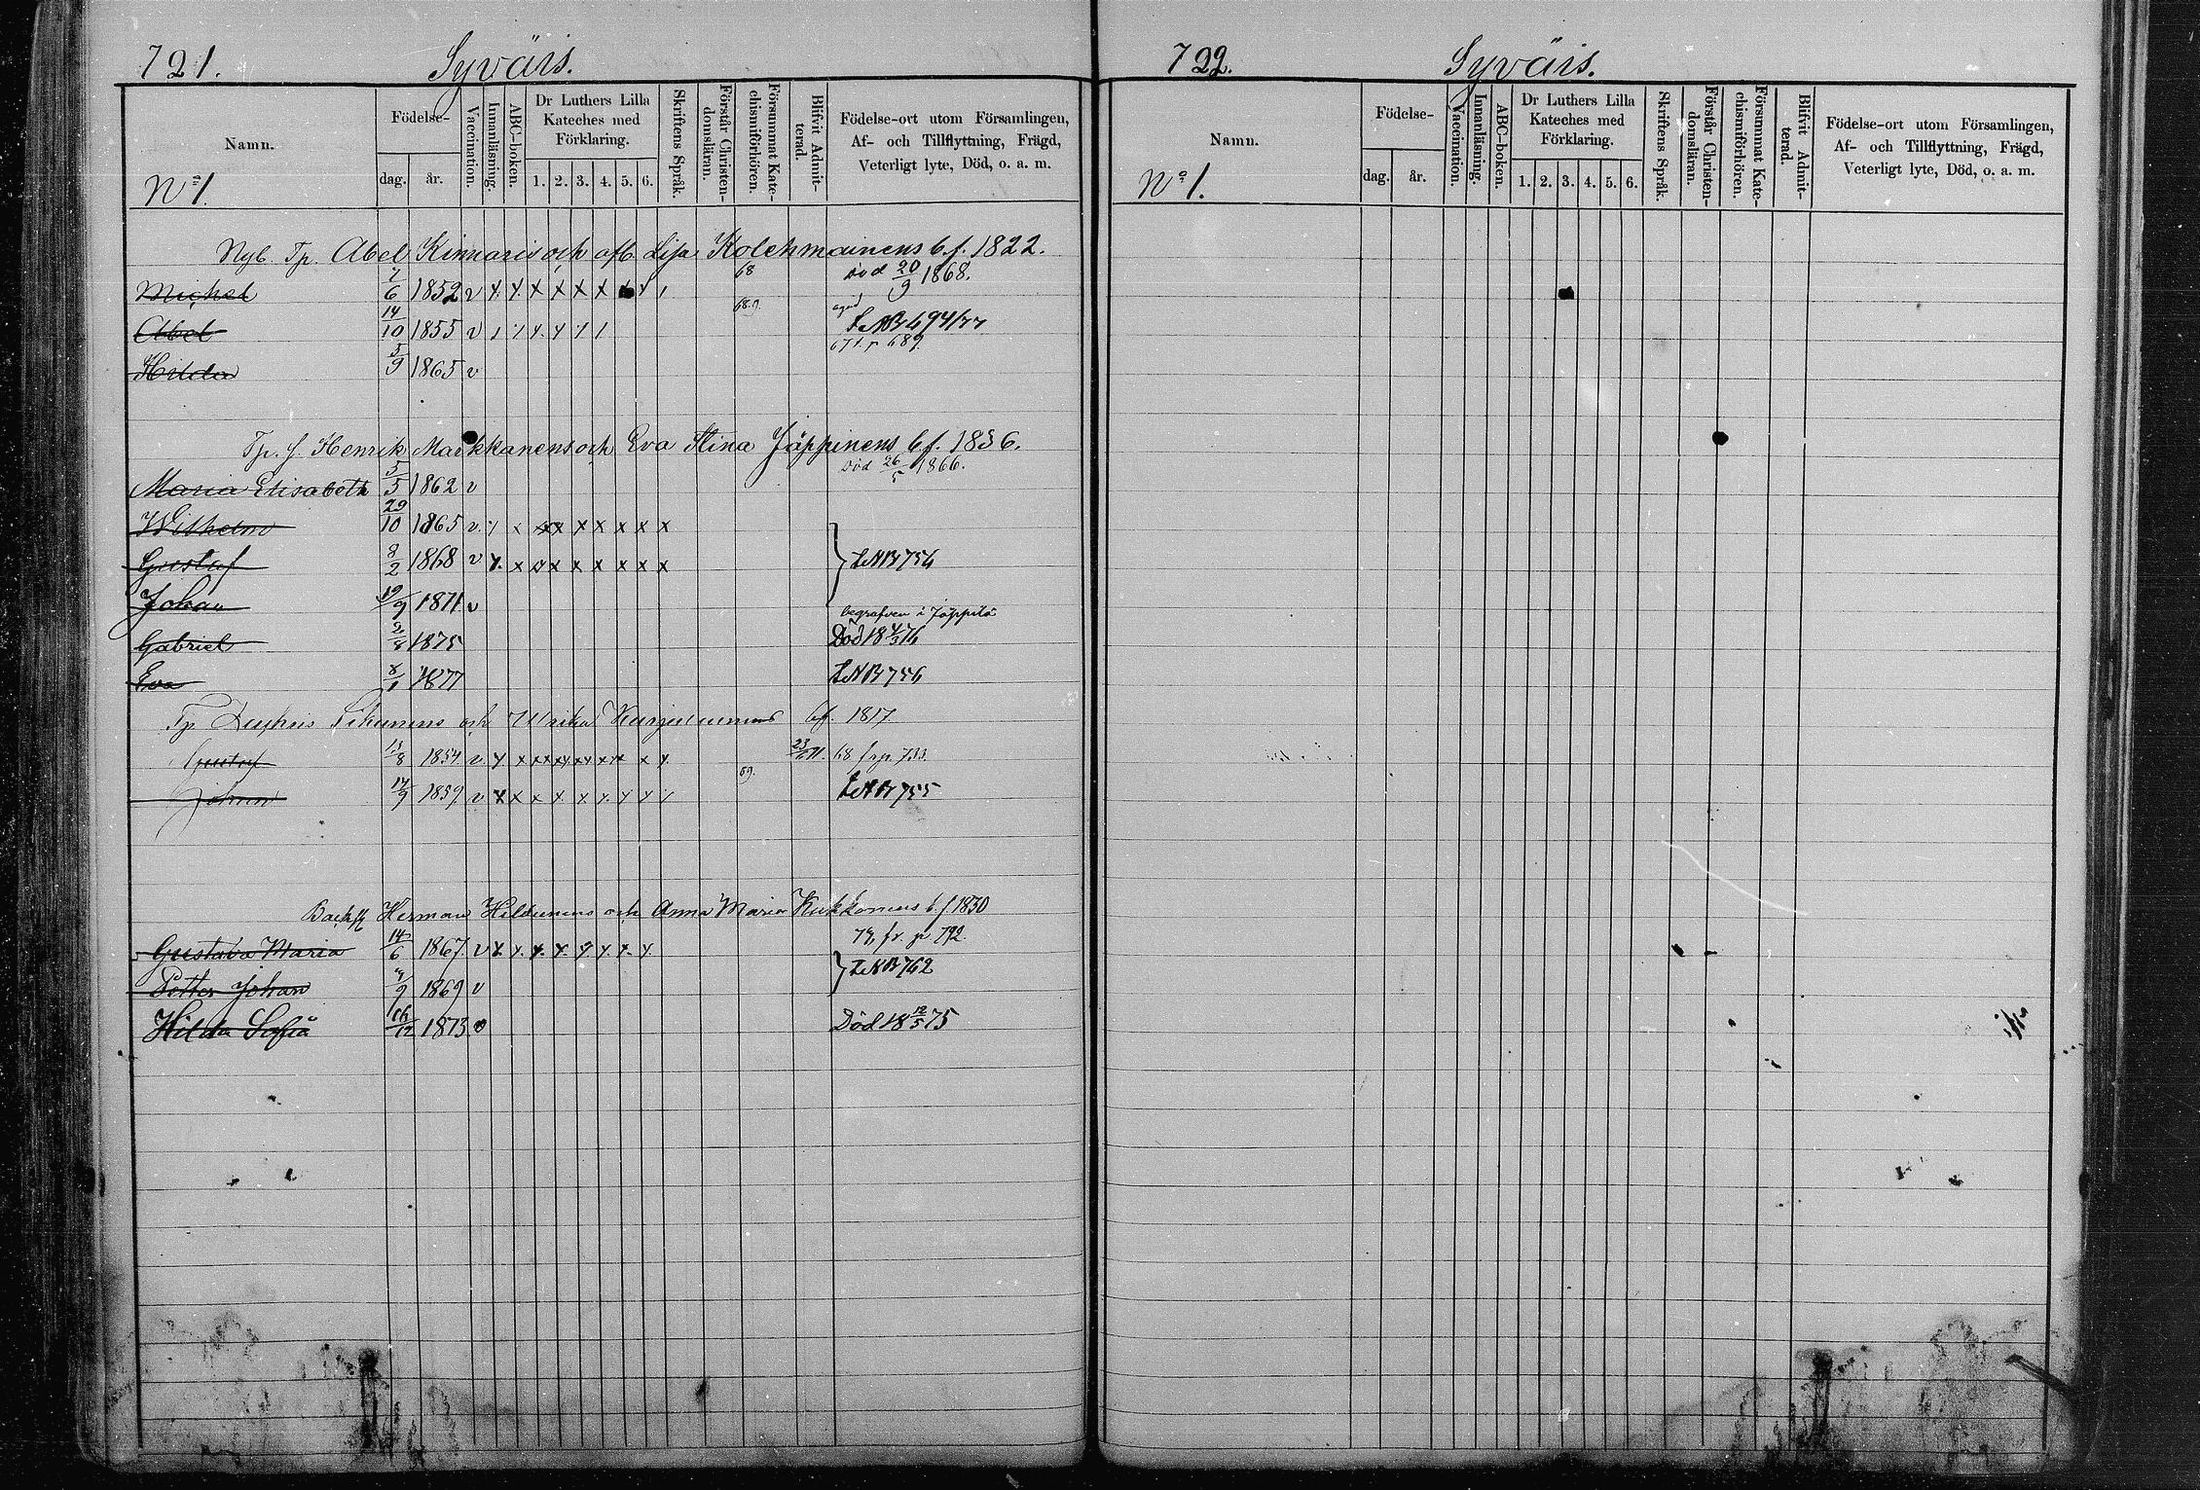 721. Syväis.
Namn. Födelse- dag. år. Vaccination. Innanläsning. ABC-boken. Dr Luthers Lilla Kateches med Förklaring. 1. 2. 3. 4. 5. 6. Skriftens Språk. Förstår Christendomsläran. Försummat Katechismiförhören. Blifvit Admitterad. Födelse-ort utom Församlingen, Af- och Tillflyttning, Frägd, Veterligt lyte, Död, o. a. m.
No 1.
Nyb. Tp. Abel Kinnaris och afl. Lisa Kolehmainens b. f. 1822.
Michel 7/6 1852 v x x x x x x x 68 död 20/9 1868.
Abel 14/10 1855 v 68.9.
671. p 689.
Hilda 5/9 1865 v
Tp. f. Henrik Markkanens och Eva Stina Jäppinens b. f. 1836.
Maria Elisabeth 5/5 1862 v Död 26/5 1866.
Wilhelm 29/10 1865 v x x x x x x x x
Gustaf 8/2 1868 v x x x x x x x x } LNB 756
Johan 19/9 1871 v
begrafven i Jäppilä
Gabriel 2/8 1875 Död 18 4/3 76
Eva 8/1 1877 LNB 756
Tp och Ulrika bf. 1817
Gustaf 13/8 1854 v x x x x x x x x x 68 fr p. 733
Johan 14/9 1859 v x x x x x x x x x 69. LNB 755
Herman och Anna Maria Kukkonens b. f 1830
Gustava Maria 14/6 1867. v x. x. x. x. x. x. x. x. fr. p 792
} LNB 762
Petter Johan 9 1869 v
Hilda Sofia 16/12 1873 v Död 18 12/5 75
722. Syväis.
Namn. Födelse- dag. år. Vaccination. Innanläsning. ABC-boken. Dr Luthers Lilla Kateches med Förklaring. 1. 2. 3. 4. 5. 6. Skriftens Språk. Förstår Christendomsläran. Försummat Katechismiförhören. Blifvit Admitterad. Födelse-ort utom Församlingen, Af- och Tillflyttning, Frägd, Veterligt lyte, Död, o. a. m.
No 1.